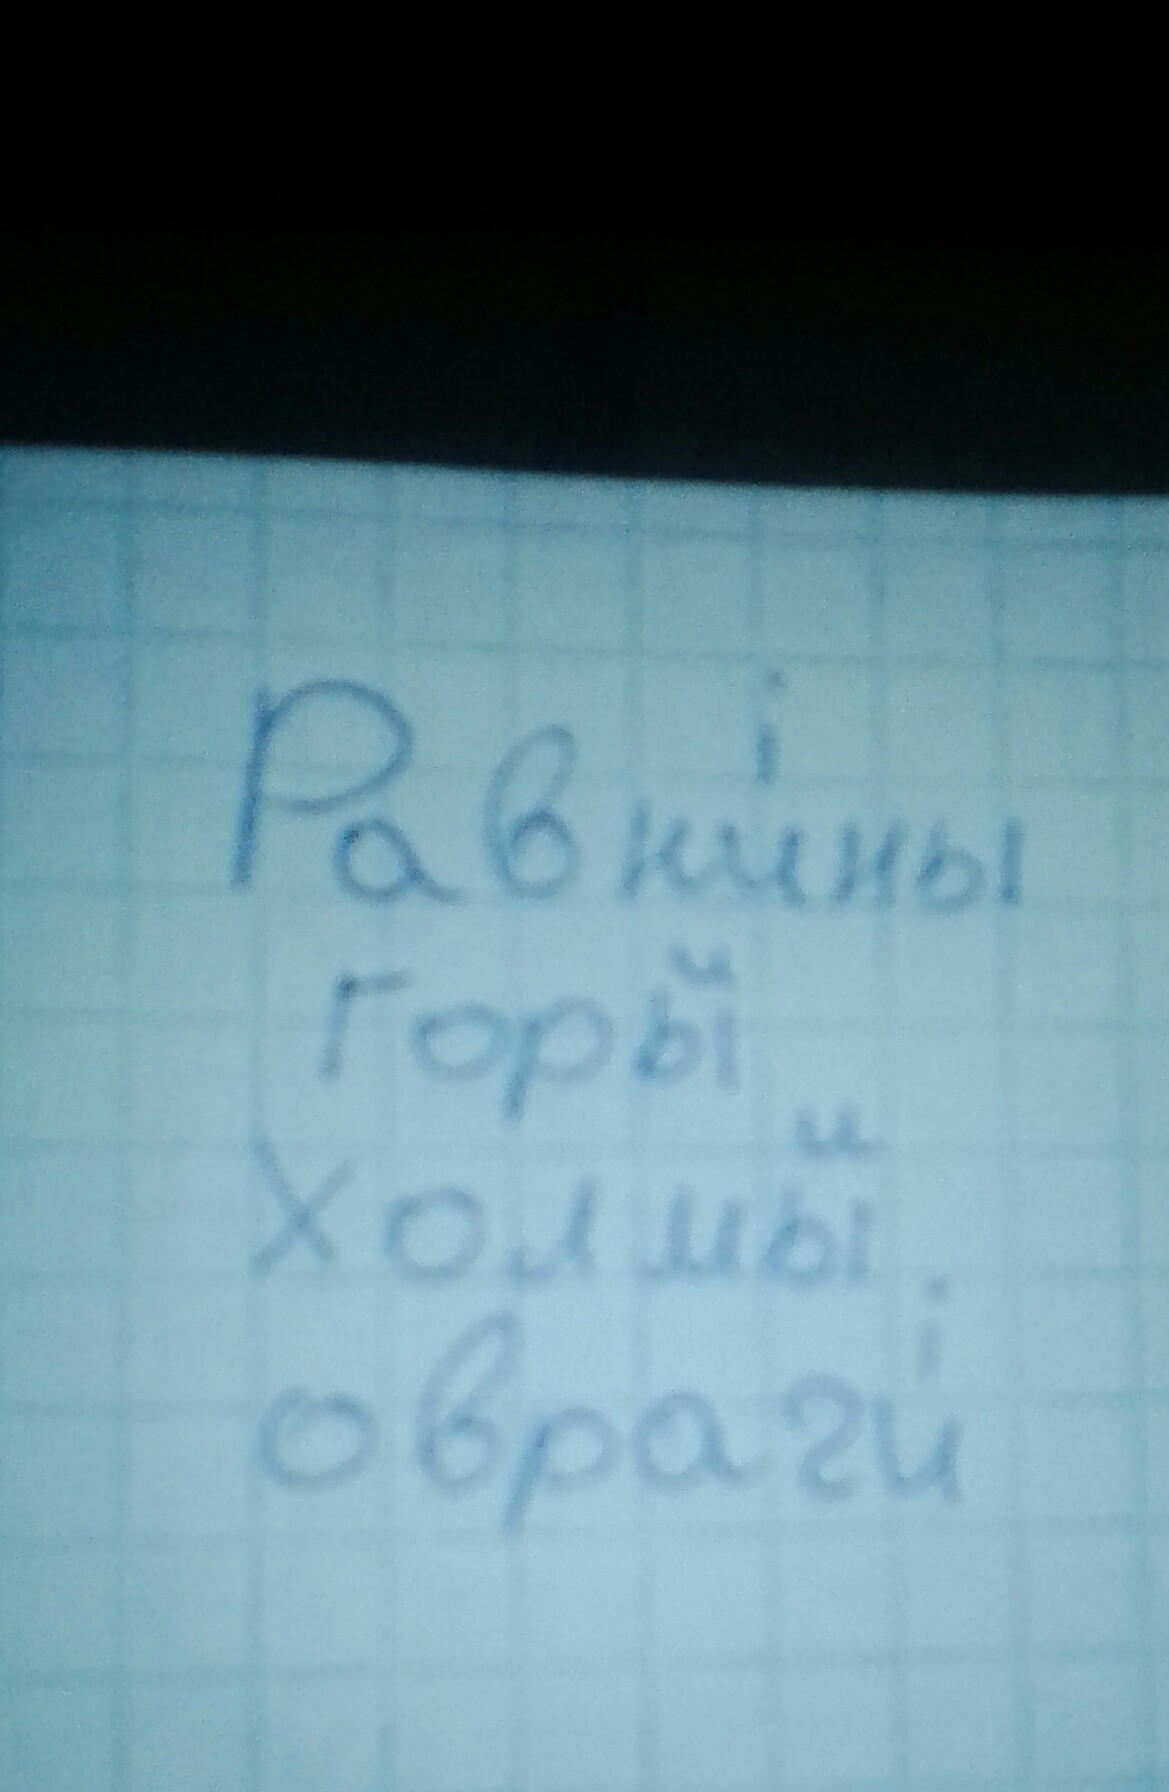 Равнины
горы
холмы
овраги